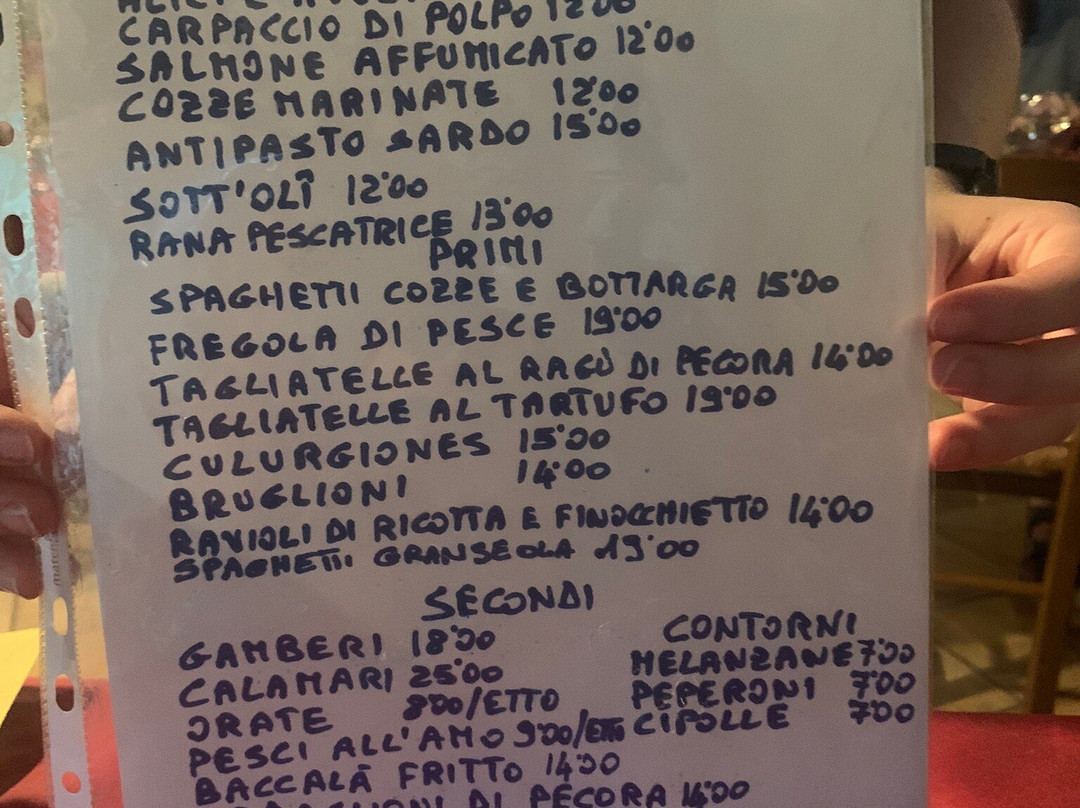 CARPACCIO DI POLPO 12'00
SALMONE AFFUMICATO 12'00
COZZE MARINATE 12'00
ANTIPASTO SARDO 15'00
SOTT'OLÎ 12'00
RANA PESCATRICE 13'00
PRIMI
SPAGHETTI COZZE E BOTTARGA 15'00
FREGOLA DI PESCE 19'00
TAGLIATELLE AL RAGÙ DI PECORA 14'00
TAGLIATELLE AL TARTUFO 19'00
CULURGIONES 15'00
BRUGLIONI 14'00
RAVIOLI DI RICOTTA E FINOCCHIETTO 14'00
SPAGHETTI GRANSEOLA 19'00
SECONDI
GAMBERI 18'00
CALAMARI 25'00
ORATE 8'00/ETTO
PESCI ALL'AMO 9'00/ETTO
BACCALÀ FRITTO 14'00
DI PECORA 14'00
CONTORNI
MELANZANE 7'00
PEPERONI 7'00
CIPOLLE 7'00